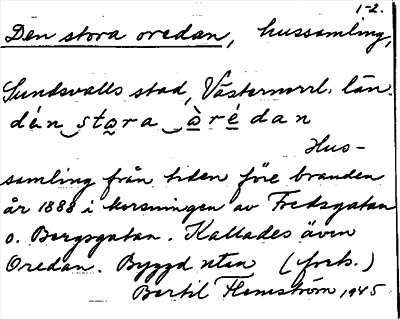 1-2.
Den stora oredan, hussamling,
Sundsvalls stad, Västernorrl. län.
dén stora òrédan
Hus-
samling från tiden före branden
år 1888 i korsningen av Fredsgatan
o. Bergsgatan. Kallades även
Oredan. Byggd utan (forts.)
Bertil Flemström 1945